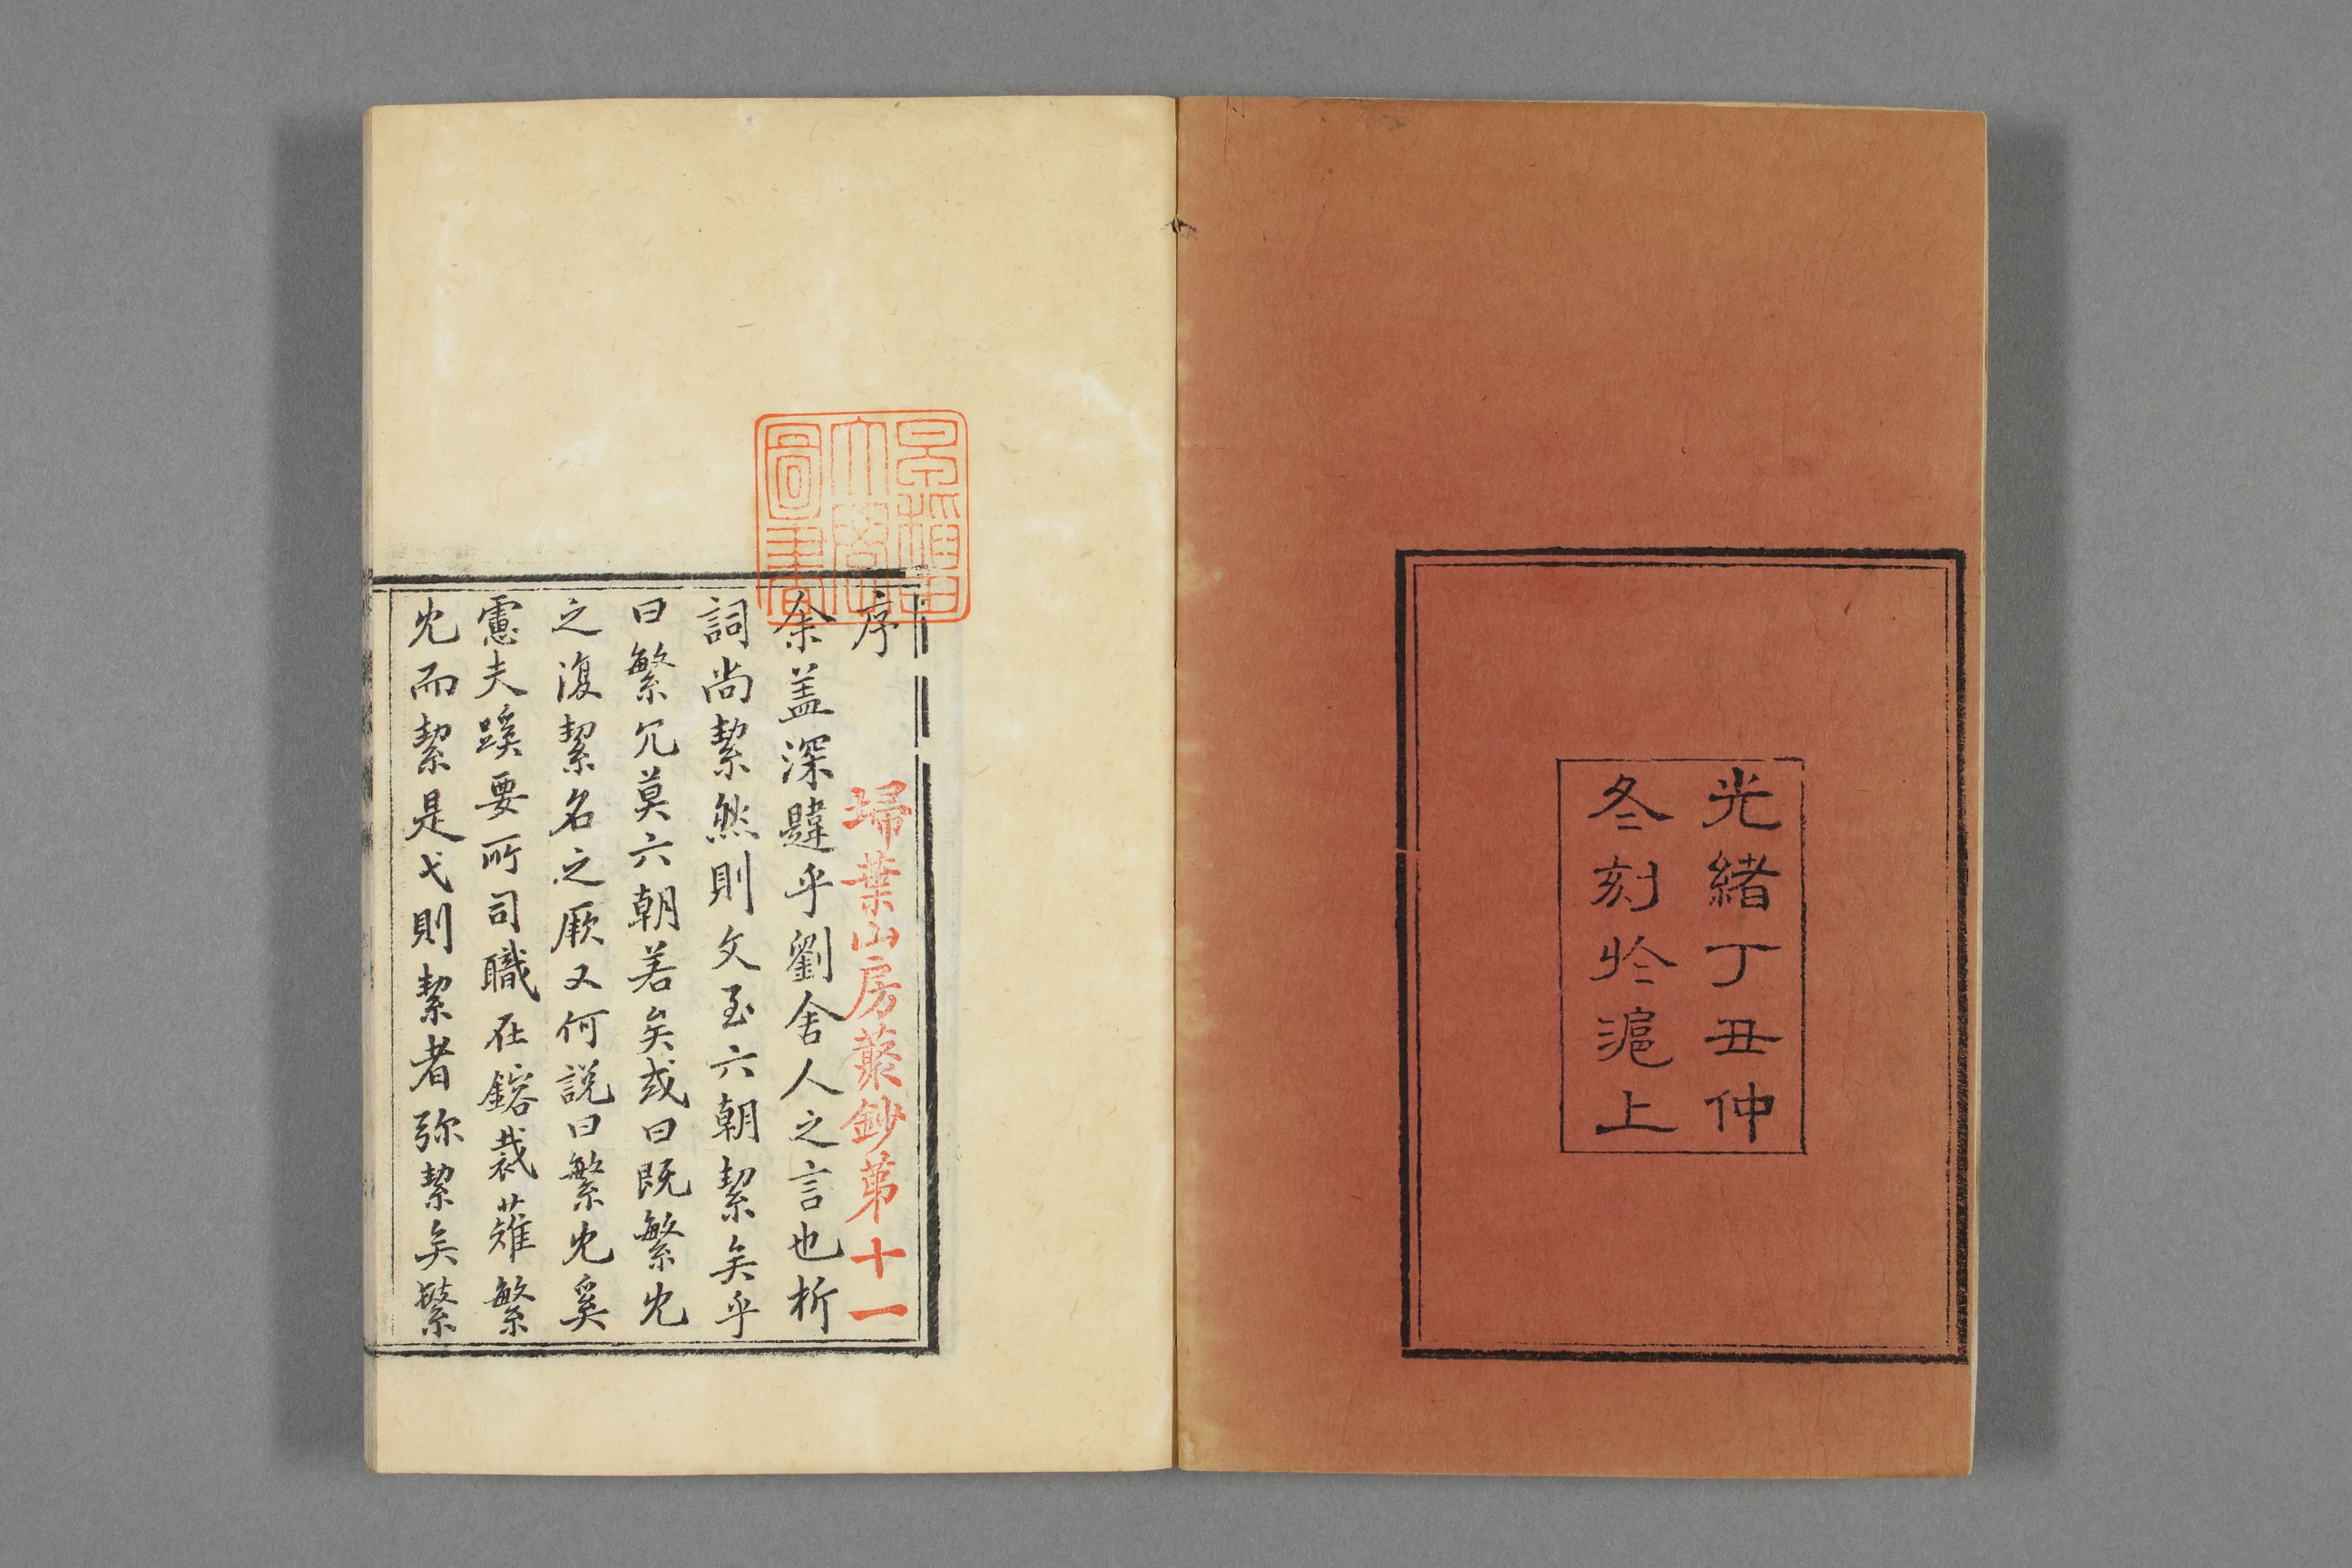 光緒丁丑仲
冬刻於滬上
景稲田
大學
圖書
序
埽葉山房叢鈔第十一
余蓋深韙乎劉舍人之言也析
詞尚絜然則文至六朝絜矣乎
曰繁冗莫六朝若矣或曰既繁冗
之復絜名之厥又何説曰繁冗奚
慮夫蹊要所司職在鎔裁薙繁
冗而絜是弋則絜者弥絜矣繁